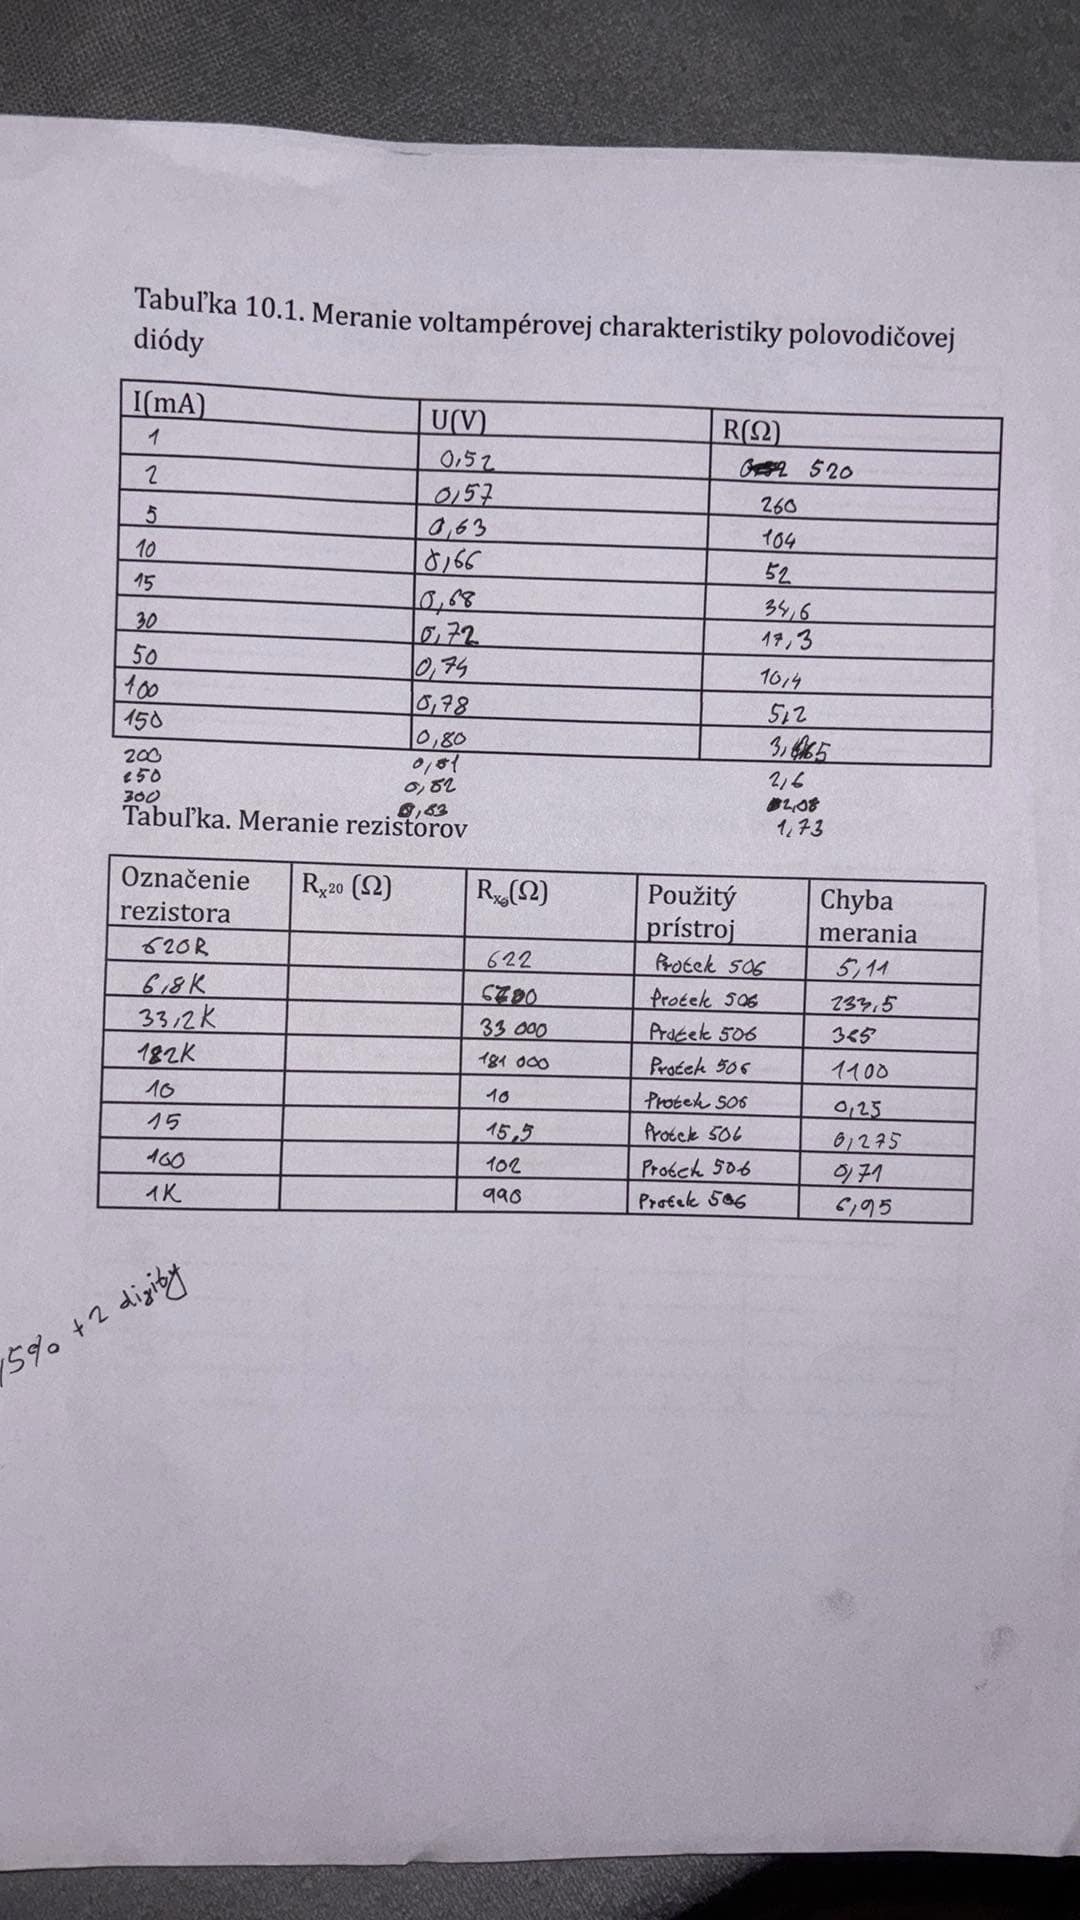 Tabuľka 10.1. Meranie voltampérovej charakteristiky polovodičovej
diódy
I(mA) U(V) R(Ω)
1 0,52 520
2 0,57 260
5 0,63 104
10 0,66 52
15 0,68 34,6
30 0,72 17,3
50 0,74 10,4
100 0,78 5,2
150 0,80
200 0,81 2,6
250 0,82 2,08
300 0,83 1,73
Tabuľka. Meranie rezistorov
Označenie rezistora Rx20 (Ω) (Ω) Použitý prístroj Chyba merania
620R 622 Protek 506 5,11
6,8K Protek 506 233,5
33,2K 33 000 Protek 506 365
182K 181 000 Protek 506 1100
10 10 Protek 506 0,25
15 15,5 Protek 506 0,275
100 102 Protek 506 0,71
1K 990 Protek 506 6,95
,5% +2 digity